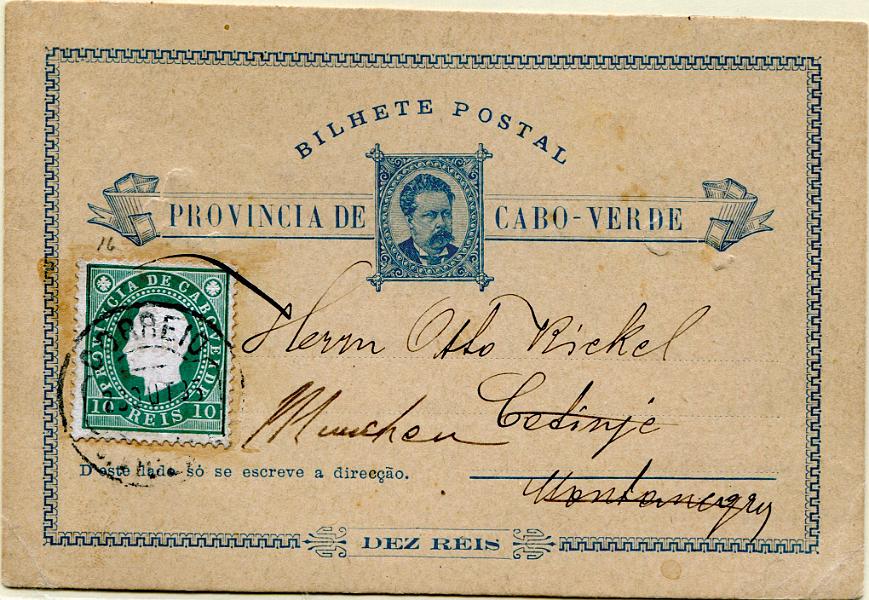 BILHETE POSTAL
PROVINCIA DE CABO-VERDE
16
PROVINCIA DE CABO VERDE
CORREIO
10 REIS 10
Herrn Otto Rickel
Cetinje
Munchen
D'este lado só se escreve a direcção.
Montanegry
DEZ RÉIS